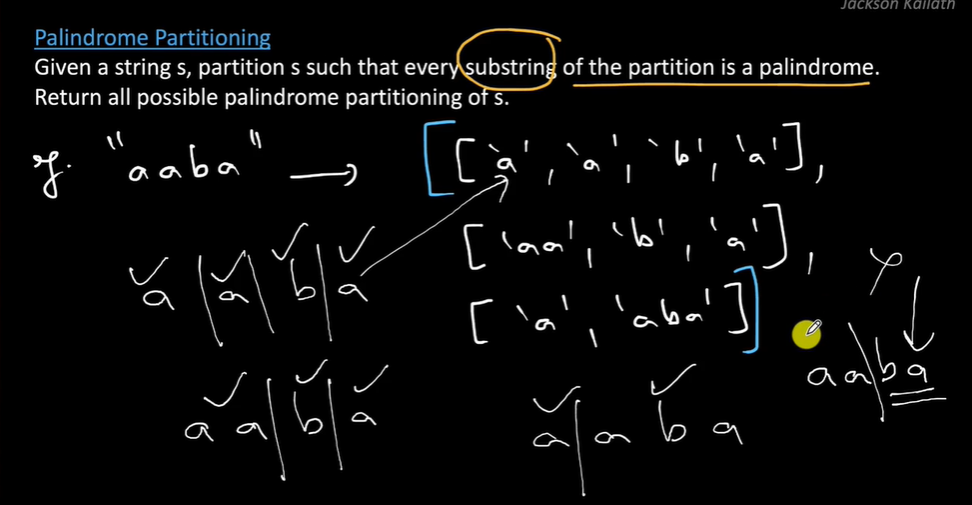 Jackson Kailath
Palindrome Partitioning
Given a string s, partition s such that every substring of the partition is a palindrome.
Return all possible palindrome partitioning of s.
"aaba" → [['a', 'a', 'b', 'a'],
['aa', 'b', 'a'],
['a', 'aba']]
a|a|b|a
aa|b|a
a|aba
aa|ba